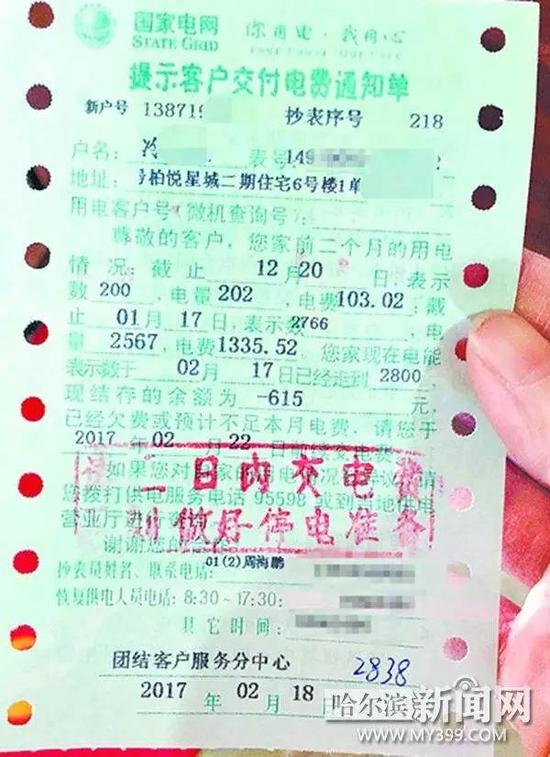 国家电网
STATE GRID
你用电·我用心
Your Power Our Care
提示客户交付电费通知单
新户号 138719 抄表序号 218
户名: 表号149
地址: 号柏悦星城二期住宅6号楼1单
用电客户号(微机查询号):
尊敬的客户,您家前二个月的用电
情况:截止 12月20 日,表示
数 200 ,电量 202 ,电费103.02;截
止 01月 17日,表示数2766 ,电
量 2567 ,电费1335.52 ,您家现在电能
表示数于 02月 17日已经走到 2800 ,
现结存的余额为 -615 元,
已经欠费或预计不足本月电费,请您于
2017 年 02 月 22
二日内交电费
如果您对
您拨打供电服务电话 95598 或到 供电
做好停电准备
营业厅进行
谢谢您的
01(2)周海鹏
抄表员姓名、联系电话:
恢复供电人员电话:8:30~17:30:
其它时间:
团结客户服务分中心 2838
2017 年 02 月 18
哈尔滨新闻网
WWW.MY399.COM